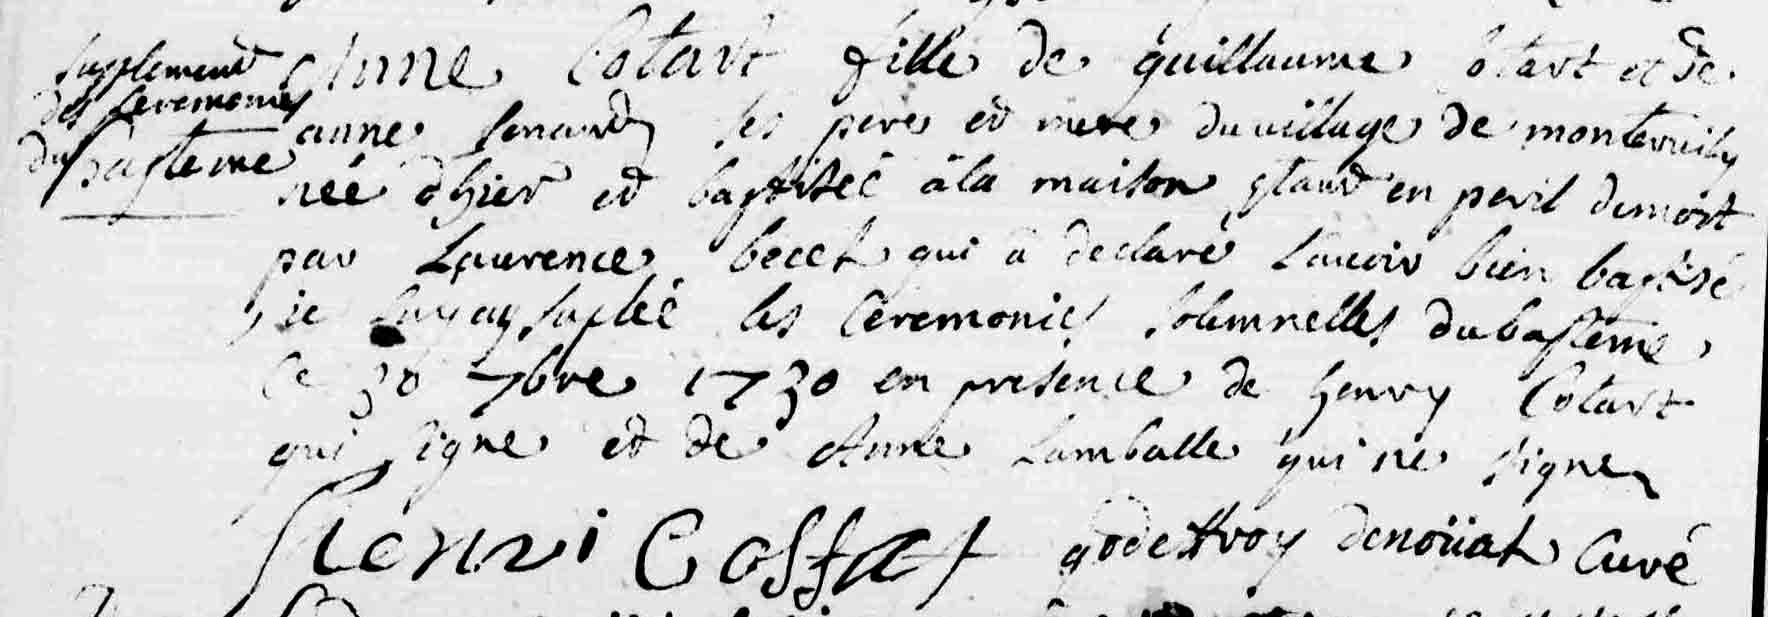 supplement
des Ceremonies
du basteme
Anne Cotart fille de guillaume Cotart et de
anne ses pere et mere du village de
née d'hier et baptisée à la maison etant en peril de mort
par Laurence becel qui a declaré l'avoir bien baptisé
je luy ay suplée les Ceremonies solemnelles du basteme
Ce 30 7bre 1730 en presence de henry Cotart
qui signe et de Anne Lamballe qui ne signe
Henri godeffroy denoüal Curé